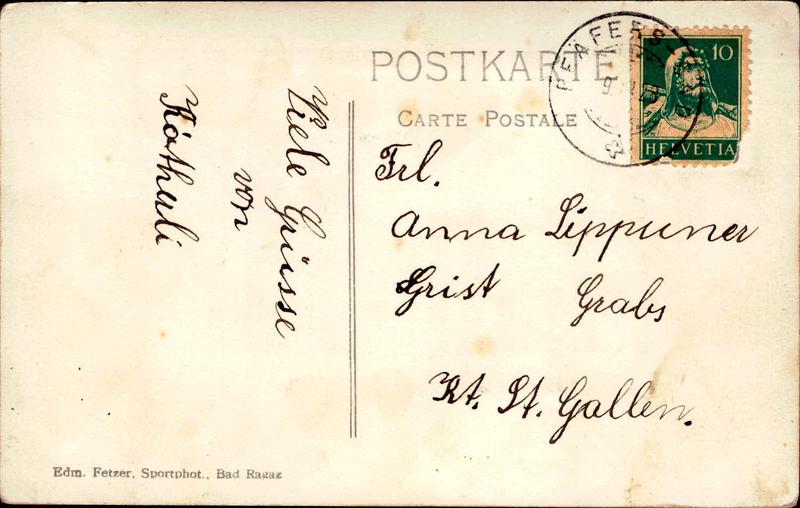 POSTKARTE
CARTE POSTALE
10
HELVETIA
Frl.
Anna Lippuner
Grist Grabs
Kt. St. Gallen.
Viele Grüsse
von
Käthuli
Edm. Fetzer, Sportphot., Bad Ragaz